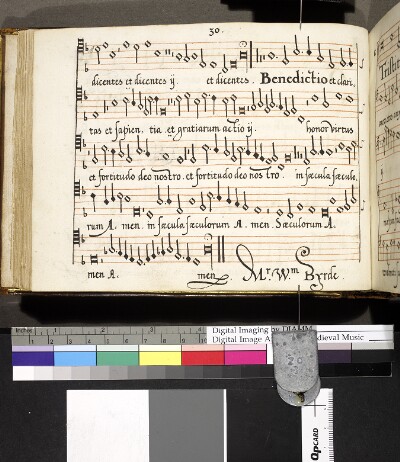 30.
dicentes et dicentes ij. et dicentes. Benedictio et clari,
tas et sapien, tia et gratiarum actio ij. honor virtus
et fortitudo deo nostro. et fortitudo deo nostro. in sæcula sæcule,
rum A. men. in sæcula sæculorum A. men. Sæculorum A.
men A. men Mr. Wm Byrde.
Trilhe
Inches 1 2 3
Digital Imaging by DIAMM
Digital Image A Medieval Music
QPCARD